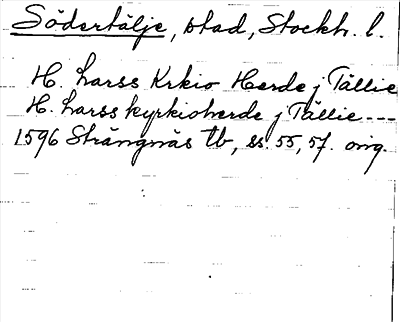 Södertälje, stad, Stockh. l.
H. Larss Krkio Herde j Tällie
H. Larss kyrkioherde j Tällie ---
1596 Strängnäs tb, ss. 55, 57. orig.